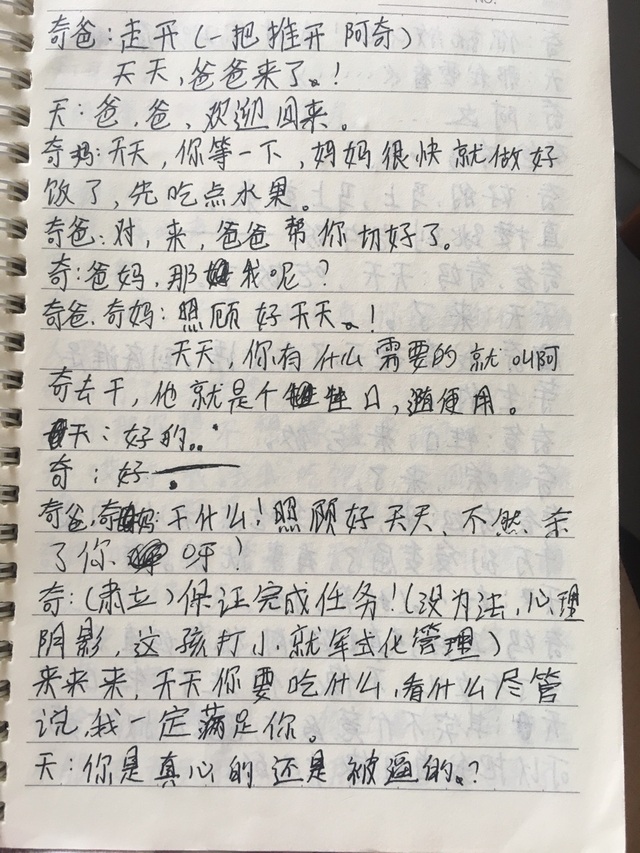 奇爸:走开(一把推开阿奇)
天天,爸爸来了。!
天:爸,爸,欢迎回来。
奇妈:天天,你等一下,妈妈很快就做好
饭了,先吃点水果。
奇爸:对,来,爸爸帮你切好了。
奇:爸妈,那我呢?
奇爸.奇妈:照顾好天天。!
天天,你有什么需要的就叫阿
奇去干,他就是个牲口,随便用。
天:好的..
奇:好——.
奇爸,奇妈:干什么!照顾好天天,不然杀
了你呀!
奇:(肃立)保证完成任务!(没办法,心理
阴影,这孩打小就军式化管理)
来来来,天天你要吃什么,看什么尽管
说,我一定满足你。
天:你是真心的还是被逼的。?